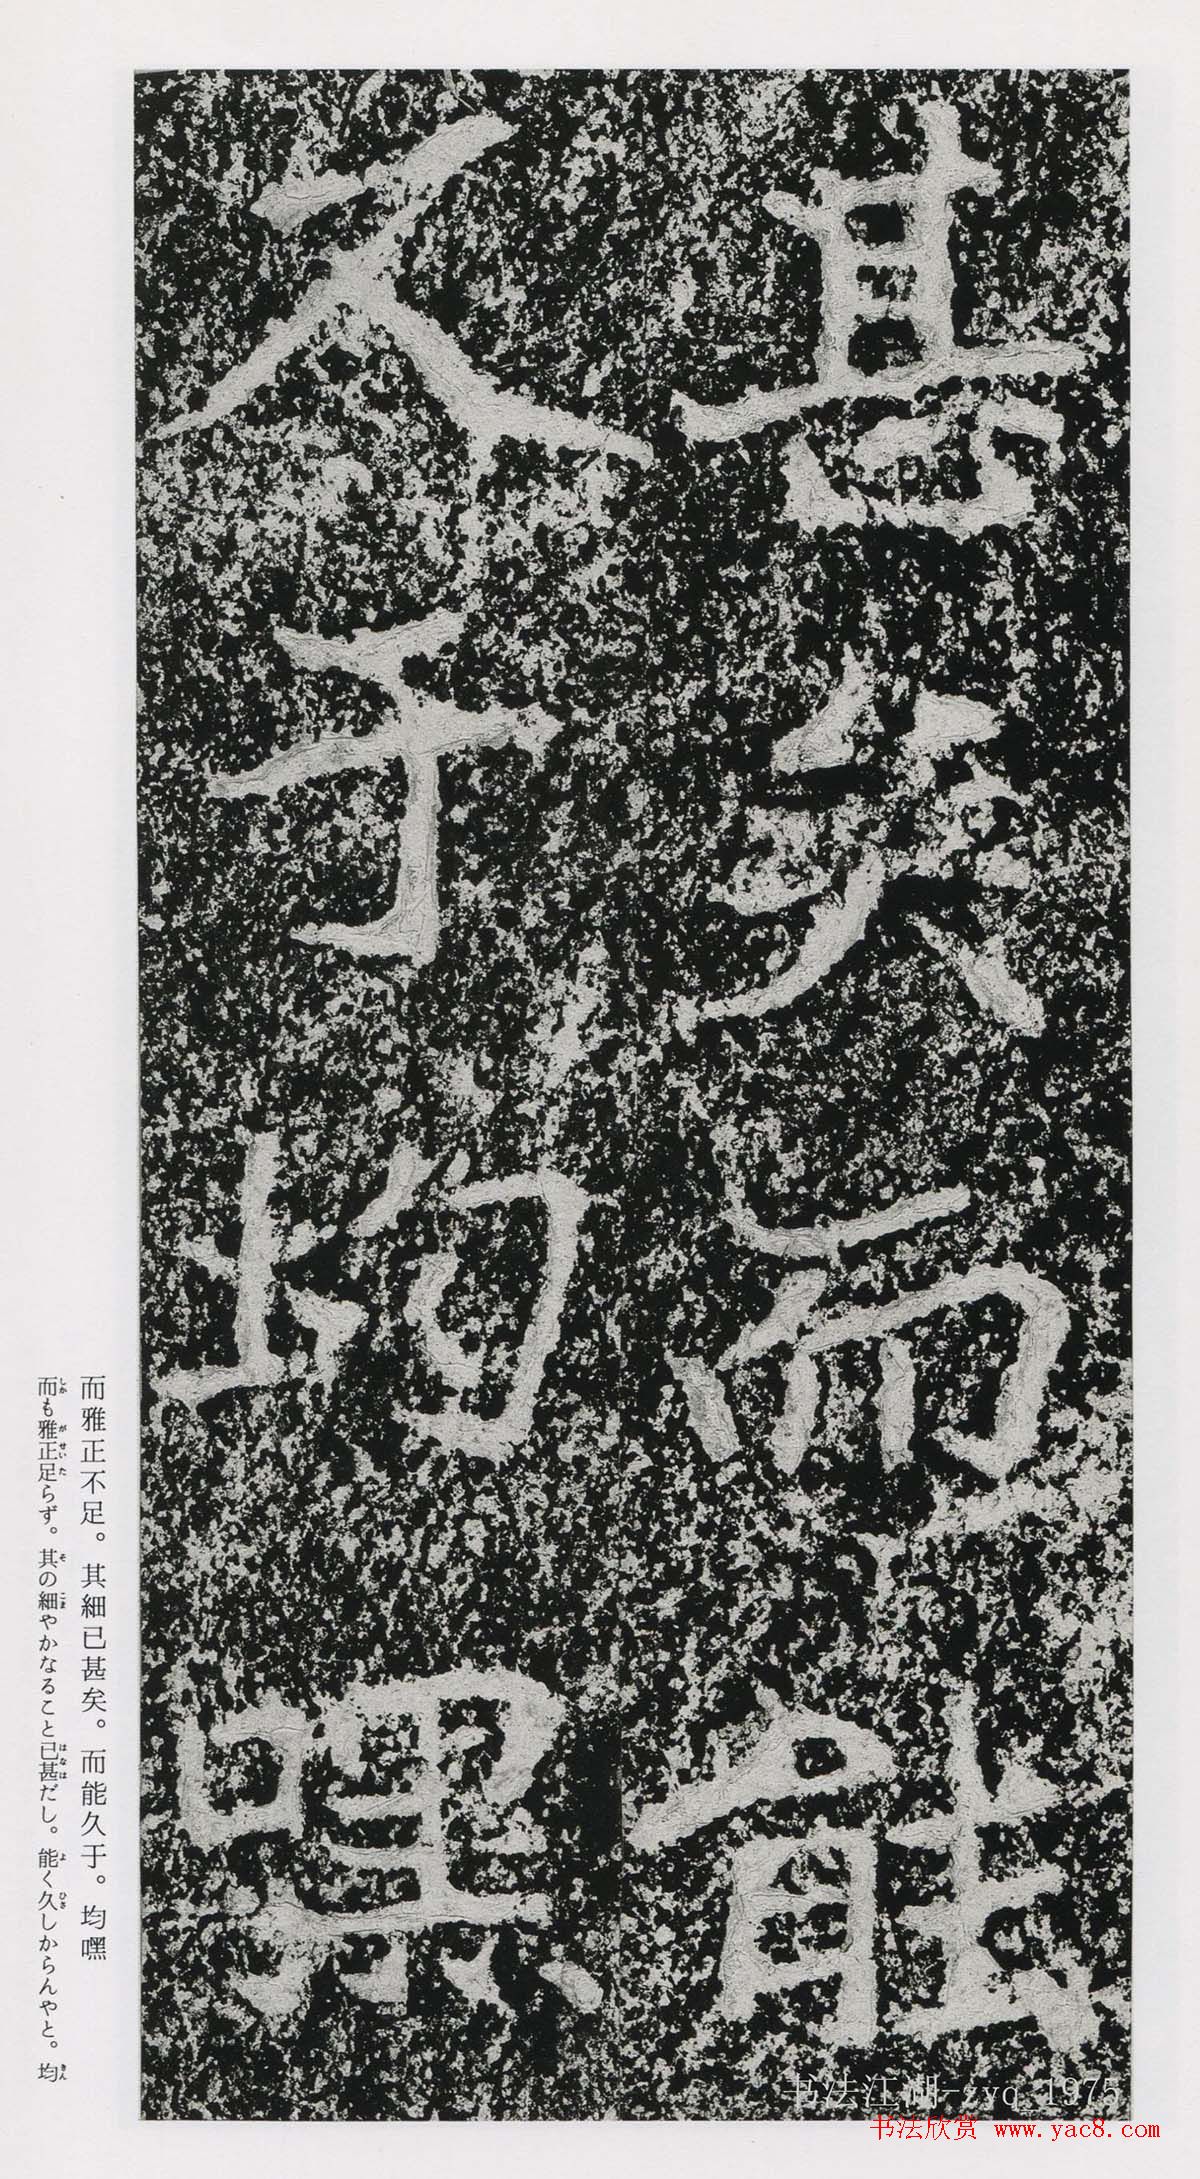 甚矣而能
久于均嘿
而雅正不足。其細已甚矣。而能久于。均嘿
而も雅正足らず。其の細やかなること已甚だし。能く久しからんやと。均
书法江湖-zyq_1975
书法欣赏 www.yac8.com